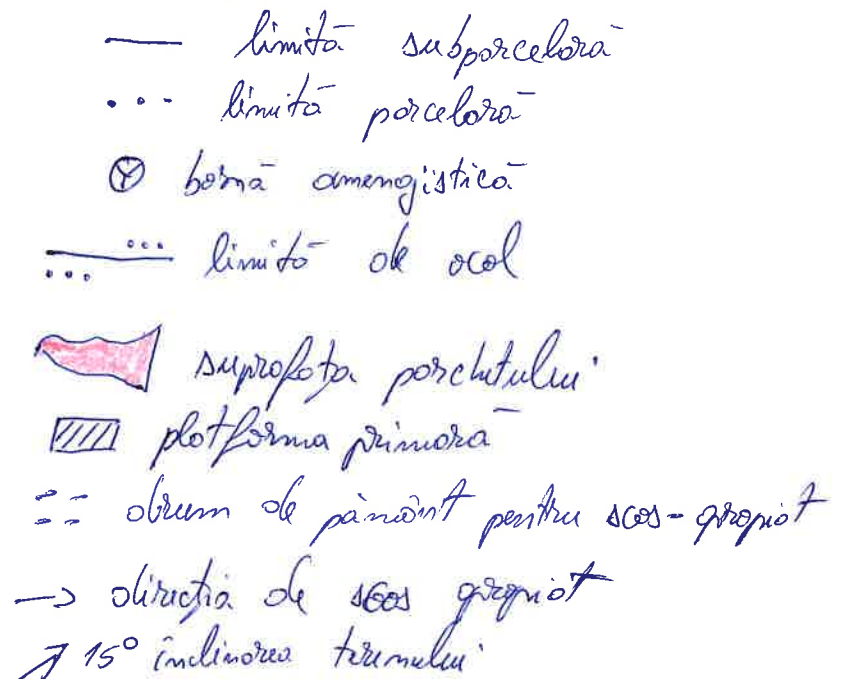 limită subparcelară
limită parcelară
bornă amenajistică
limită de ocol
suprafața parchetului
platforma primară
drum de pământ pentru scos-apropiat
direcția de scos apropiat
15° înclinarea terenului